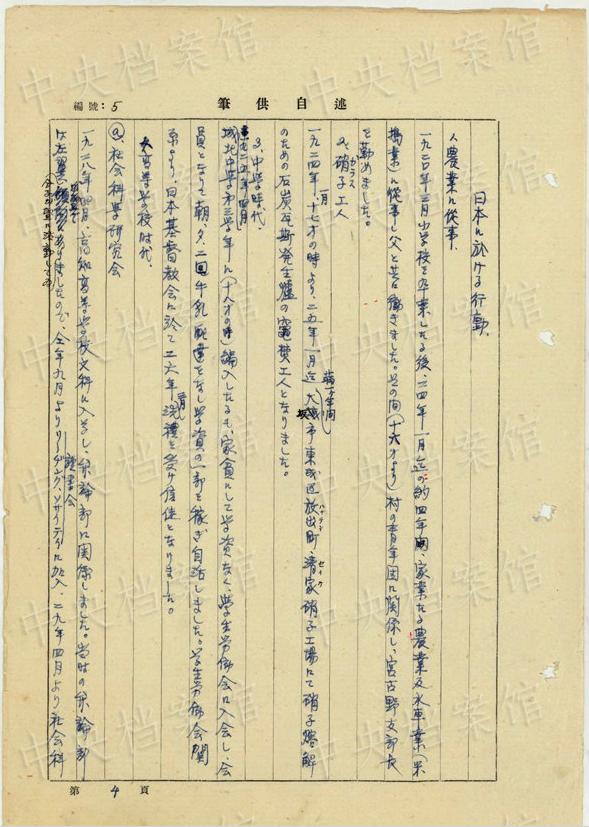 述自供筆
編號：5
日本に於ける行動、
1、農業に從事、
一九二〇年三月小学校を卒業したる後、二四年一月迄の約四年間、家業たる農業及水車業（
搗業）に從事し父と共に働きました。其の間（十六才より）村の青年団に関係し、宮古野支部長
を勤めました。
2、硝子工人
ガラス
一九二四年一月十七才の時より、二五年一月迄満一ヶ年間大阪市東成区放出町、清家硝子工場にて硝子熔解
ハナテン
セイケ
のための石炭瓦斯発生爐の工人となりました。
3、中学時代、
一九二五年四月
城北中学第三学年に（十八才の時）編入したるも、家貧にして学資なく、學生労働会に入会し、会
員となって朝、夕、二回牛乳配達をなし学資の一部を稼ぎ自活しました。学生労働会関
係より、日本基督教会に於て二六年二月洗禮を受け信徒となりました。
4、高等学校時代、
(a)、社会科学研究会
一九二八年四月、高知高等学校文科に入学し、弁論部に関係しました。当時の弁論部
は左翼ありましたので、仝年九月よりリーディング、ソサイティに加入、二九年四月より社会科
読書会
第 4 頁
中央档案馆